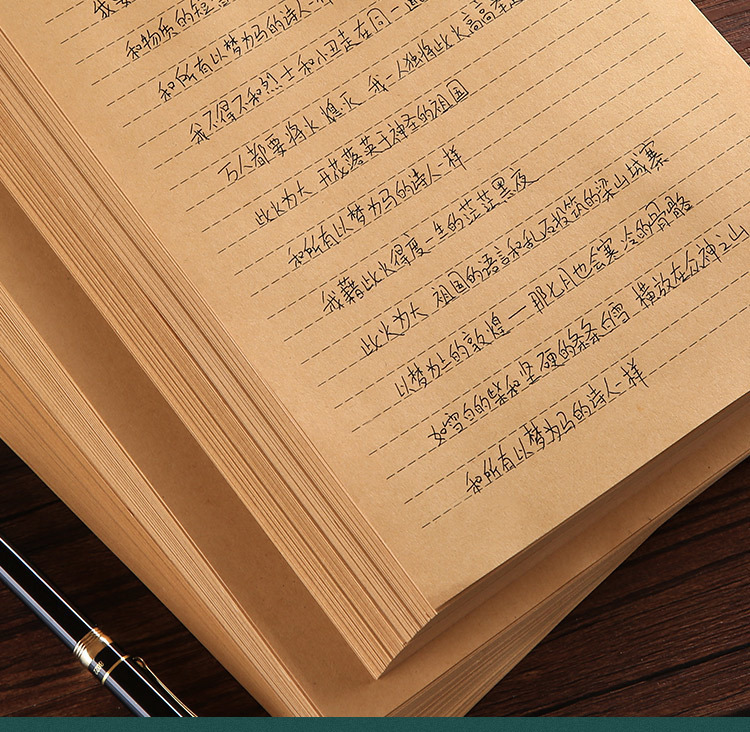 我要
和物质的短
和所有以梦为马的诗人一样
我不得不和烈士和小丑走在同一
万人都要将火熄灭 我一人独将此火高高举
此火为大 开花落英于神圣的祖国
和所有以梦为马的诗人一样
我藉此火得度一生的茫茫黑夜
此火为大 祖国的语言和乱石投筑的梁山城寨
以梦为上的敦煌一那七月也会寒冷的骨骼
如雪白的柴和坚硬的条条白雪 横放在众神之山
和所有以梦为马的诗人一样